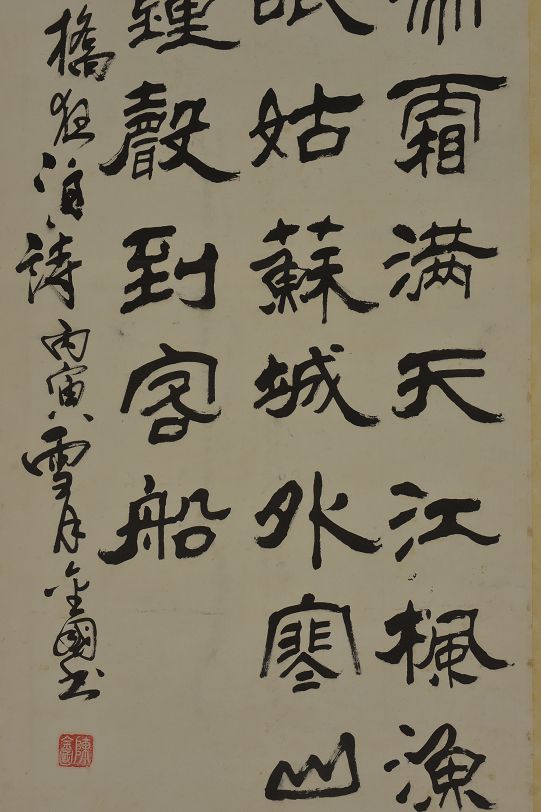 啼霜滿天江楓漁
眠姑蘇城外寒山
鍾聲到客船
橋夜泊詩 丙寅雪月金國書